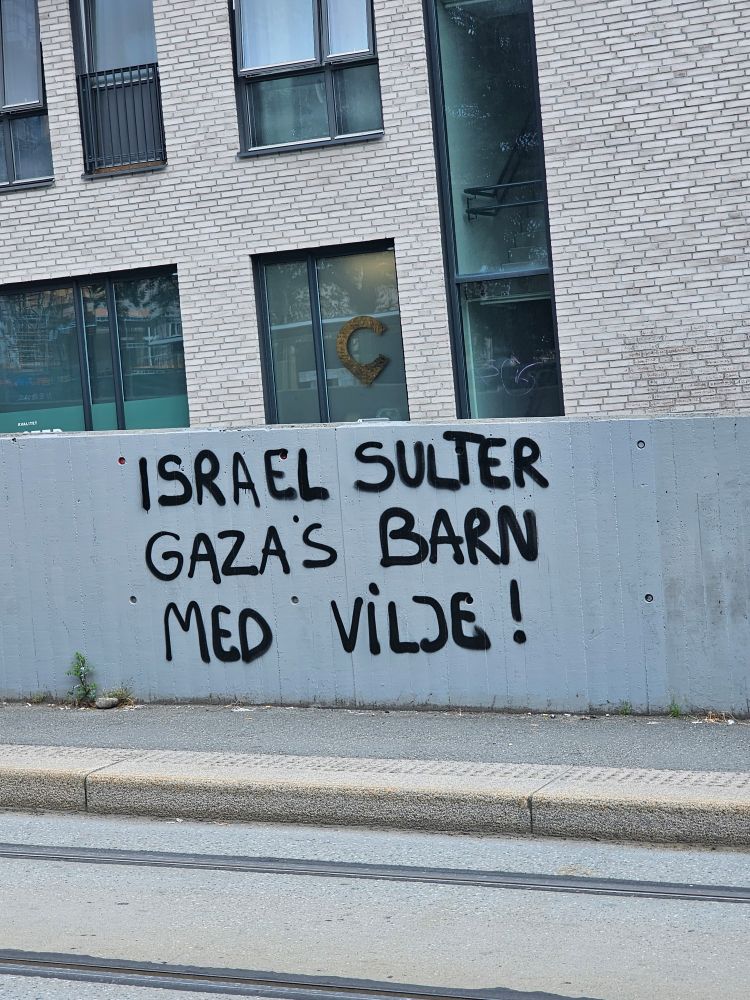 KVALITET
ISRAEL SULTER
GAZA'S BARN
MED VILJE!